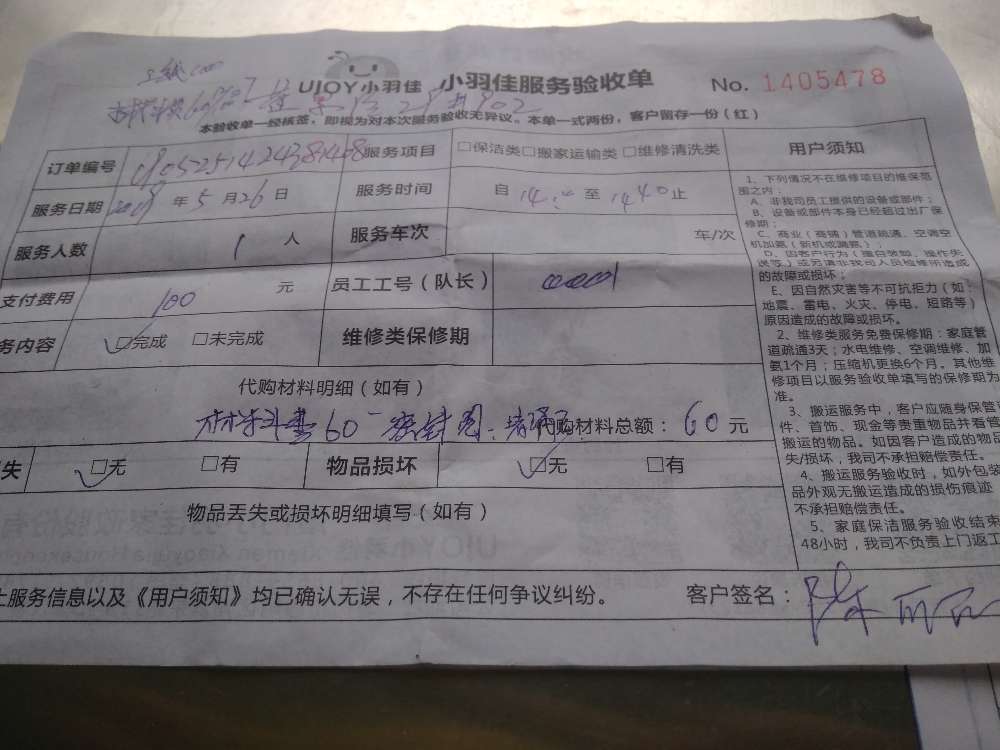 UJOY小羽佳 小羽佳服务验收单 No. 1405478
本验收单一经核签，即视为对本次服务验收无异议。本单一式两份，客户留存一份（红）
订单编号 服务项目 □保洁类□搬家运输类 □维修清洗类
服务日期 年 5 月 26 日 服务时间 自 至 14 40 止
服务人数 1 人 服务车次 车/次
支付费用 100 元 员工工号（队长）
务内容 □完成 □未完成 维修类保修期
代购材料明细（如有）
材料费60 密封圈 代购材料总额： 60 元
失 □无 □有 物品损坏 □无 □有
物品丢失或损坏明细填写（如有）
上服务信息以及《用户须知》均已确认无误，不存在任何争议纠纷。 客户签名：
用户须知
1、下列情况不在维修项目的维保范
围之内：
A、非我司员工提供的设备或部件；
B、设备或部件本身已经超过出厂保
修期；
C、商业（商铺）管道疏通、空调空
机加氨（新机或漏氨）；
D、因客户行为（擅自装卸、操作失
误等）或另请非我司人员检修所造成
的故障或损坏；
E、因自然灾害等不可抗拒力（如：
地震、雷电、火灾、停电、短路等）
原因造成的故障或损坏。
2、维修类服务免费保修期：家庭管
道疏通3天；水电维修、空调维修、加
氨1个月；压缩机更换6个月。其他维
修项目以服务验收单填写的保修期为
准。
3、搬运服务中，客户应随身保管
件、首饰、现金等贵重物品并看管
搬运的物品。如因客户造成的物品
失/损坏，我司不承担赔偿责任。
4、搬运服务验收时，如外包装
品外观无搬运造成的损伤痕迹
不承担赔偿责任。
5、家庭保洁服务验收结束
48小时，我司不负责上门返工